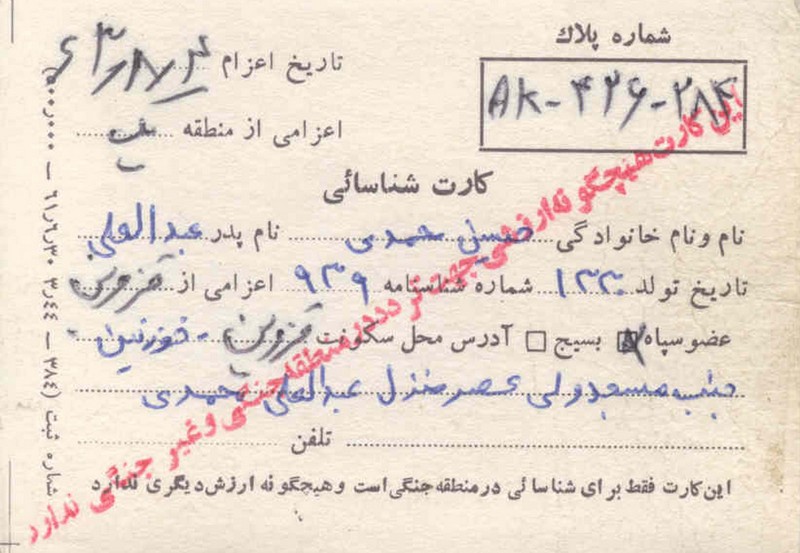 شماره پلاك
AK-۴۲۶-۲۸۴
تاریخ اعزام
اعزامی از منطقه
کارت شناسائی
نام ونام خانوادگی حسین حمدی نام پدر عبدالعلی
تاریخ تولد ۱۳۳۰ شماره شناسنامه ۹۳۹ اعزامی از قزوین
عضو سپاه بسیج آدرس محل سکونت قزوین -
جنب مسجد ولی عصر منزل عبدالعلی حمدی
تلفن
این کارت فقط برای شناسائی در منطقه جنگی است و هیچگونه ارزش دیگری ندارد
این کارت هیچگونه ارزشی جهت تردد در منطقه جنگی و غیر جنگی ندارد
شماره ثبت (۳۸٤ — ٤٤ر۳ ۳۰ر٦ر٦۱ — ۰۰۰ر۵۰۰)